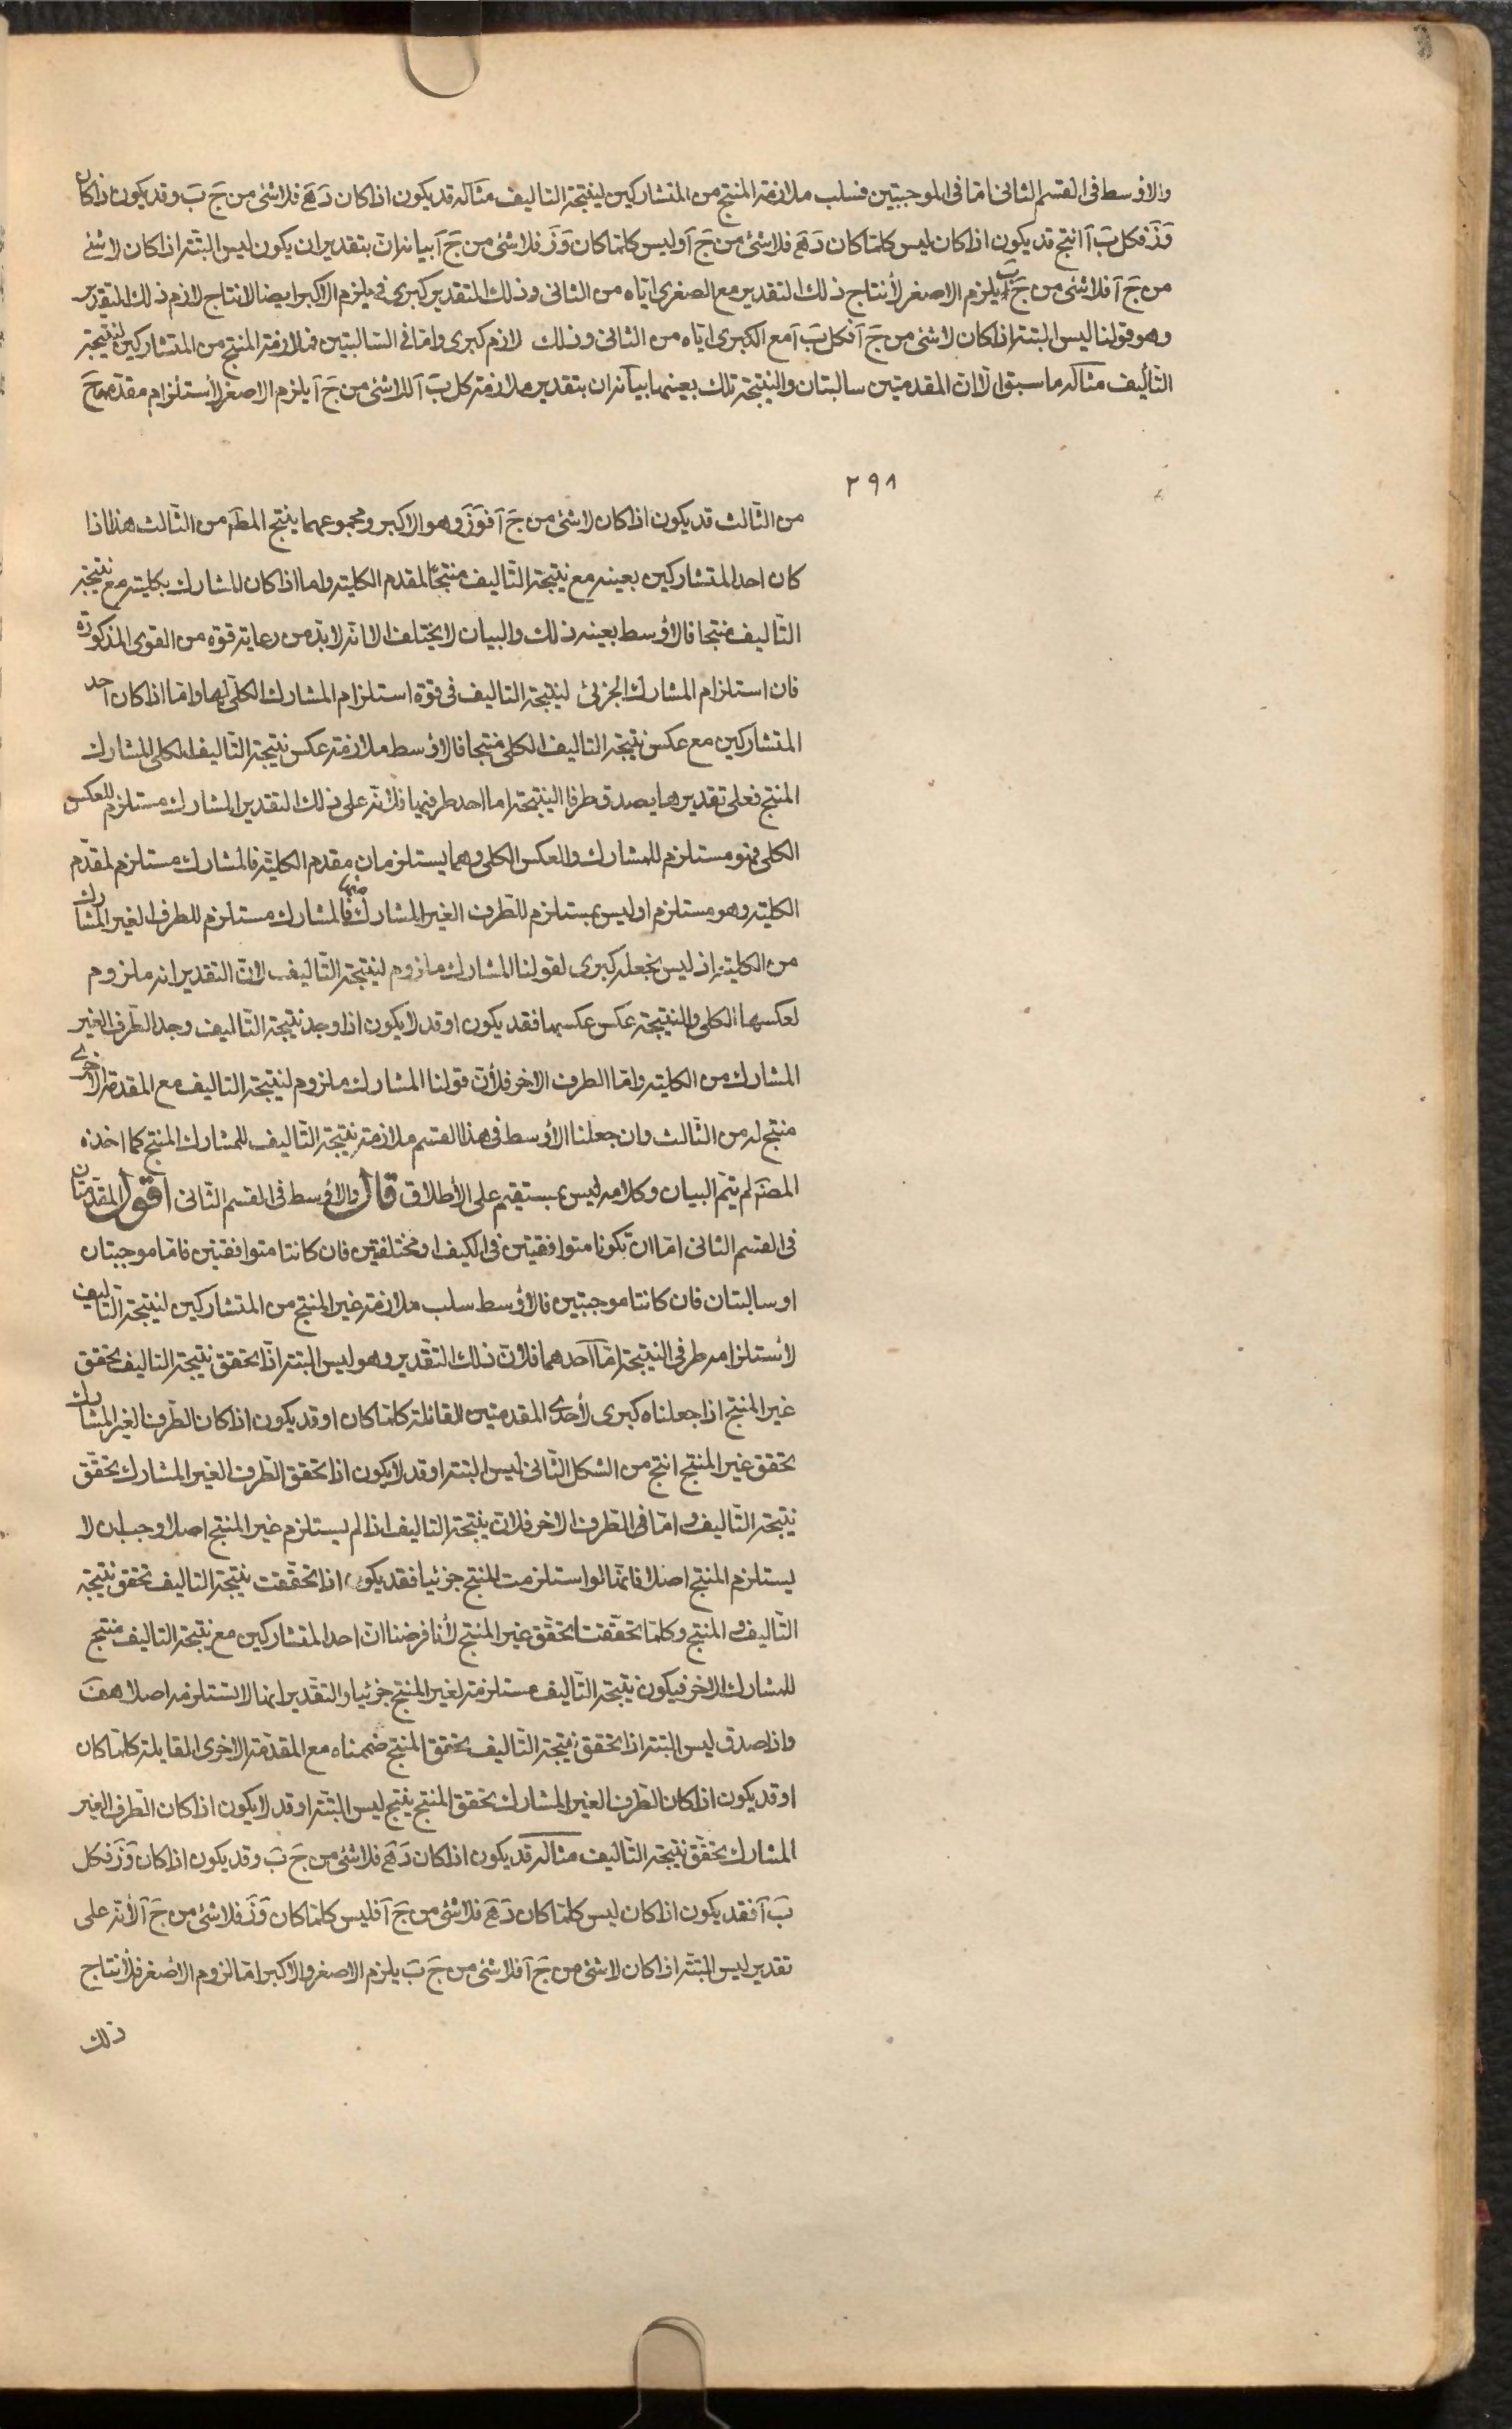 والاوسط فى القسم الثانى امّا فى الموجبتين فسلب ملازمة المنتج من المتشاركين لنتيجة التاليف مثاله قد يكون اذا كان دَ هَ فلا شئ من جَ بَ وقد يكون اذا كان
وَ زَ فكل بَ آ انتج قد يكون اذا كان ليس كلما كان دَ هَ فلا شئ من جَ آ وليس كلما كان وَ زَ فلا شئ من جَ آ بيانه انّ بتقدير ان يكون ليس البتّة اذا كان لا شئ
من جَ آ فلا شئ من جَ بَ يلزم الاصغر لأنتاج ذلك التقدير مع الصغرى ايّاه من الثانى وذلك التقدير كبرى فى يلزم الاكبر ايضا لانتاج لازم ذلك التقدير
وهو قولنا ليس البتة اذا كان لا شئ من جَ آ فكل بَ آ مع الكبرى ايّاه من الثانى وذلك لازم كبرى وامّا فى السّالبتين فملازمة المنتج من المتشاركين لنتيجة
التّأليف مثاله ما سبق الا انّ المقدمتين سالبتان والنتيجة تلك بعينها بيانه ان بتقدير ملازمة كل بَ آ للا شئ من جَ آ يلزم الاصغر لأستلزام مقدّمها جَ
٢٩٨
من الثّالث قد يكون اذا كان لا شئ من جَ آ فوَ زَ وهو الاكبر ومجموعهما ينتج المط من الثّالث هذا اذا
كان احد المتشاركين بعينه مع نتيجة التّاليف منتجًا لمقدم الكلية واما اذا كان المشارك بكليته مع نتيجة
التّاليف منتجا فالأوسط بعينه ذلك والبيان لا يختلف الا انّه لا بدّ من رعاية قوة من القوى المذكورة
فان استلزام المشارك الجزئ لنتيجة التاليف فى قوة استلزام المشارك الكلّى لها وامّا اذا كان احد
المتشاركين مع عكس نتيجة التاليف الكلى منتجا فالاوسط ملازمة عكس نتيجة التّاليف الكلى للمشارك
المنتج فعلى تقديرها يصدق طرفا النتيجة اما احد طرفيها فلانّه على ذلك التقدير المشارك مستلزم للعكس
الكلى فهو مستلزم للمشارك والعكس الكلى وهما يستلزمان مقدم الكليّة فالمشارك مستلزم لمقدّم
الكلية وهو مستلزم او ليس بمستلزم للطّرف الغير المشارك منها فالمشارك مستلزم للطرف الغير المشارك
من الكلية اذ ليس نجعله كبرى لقولنا المشارك ملزوم لنتيجة التّاليف لانّ التقدير انه ملزوم
لعكسها الكلى والنتيجة عكس عكسها فقد يكون او قد لا يكون اذا وجد نتيجة التّاليف وجد الطّرف الغير
المشارك من الكلية وامّا الطرف الاخر فلأن قولنا المشارك ملزوم لنتيجة التاليف مع المقدمة الاخرى
منتج له من الثّالث وان جعلنا الأوسط فى هذا القسم ملازمة نتيجة التّاليف للمشارك المنتج كما اخذه
المصَ لم يتمّ البيان وكلامه ليس بمستقيم على الأطلاق قال والاوسط فى القسم الثّانى اقول المقدّمتان
فى القسم الثانى امّا ان تكونا متوافقتين فى الكيف او مختلفتين فان كانتا متوافقتين فامّا موجبتان
او سالبتان فان كانتا موجبتين فالأوسط سلب ملازمة غير المنتج من المتشاركين لنتيجة التّاليف
لأستلزامه طرفى النتيجة امّا احدهما فلانّ ذلك التقدير وهو ليس البتة اذا تحقق نتيجة التاليف تحقق
غير المنتج اذا جعلناه كبرى لأحدى المقدمتين القائلة كلما كان او قد يكون اذا كان الطّرف الغير المشارك
تحقق غير المنتج انتج من الشكل الثّانى ليس البتة او قد لا يكون اذا تحقق الطّرف الغير المشارك تحقّق
نتيجة التّاليف وامّا فى الطّرف الاخر فلان نتيجة التاليف اذا لم يستلزم غير المنتج اصلا وجب ان لا
يستلزم المنتج اصلا فانّها لو استلزمت المنتج جزئيا فقد يكون اذا تحقّقت نتيجة التاليف تحقق نتيجة
التّاليف والمنتج وكلما تحقّقتا تحقّق غير المنتج لأنا فرضنا انّ احد المتشاركين مع نتيجة التاليف منتج
للمشارك الاخر فيكون نتيجة التّاليف مستلزمة لغير المنتج جزئيا والتقدير انها لا تستلزمه اصلا هف
واذا صدق ليس البتة اذا تحقق نتيجة التّاليف تحقق المنتج ضممناه مع المقدّمة الاخرى القايلة كلما كان
او قد يكون اذا كان الطّرف الغير المشارك تحقق المنتج ينتج ليس البتّة او قد لا يكون اذا كان الطّرف الغير
المشارك تحقّق نتيجة التّاليف مثاله قد يكون اذا كان دَ هَ فلا شئ من جَ بَ وقد يكون اذا كان وَ زَ فكل
بَ آ فقد يكون اذا كان ليس كلما كان دَ هَ فلا شئ من جَ آ فليس كلما كان وَ زَ فلا شئ من جَ آ لأنّه على
تقدير ليس البتّة اذا كان لا شئ من جَ آ فلا شئ من جَ بَ يلزم الاصغر والاكبر امّا لزوم الأصغر فلأنتاج
ذلك